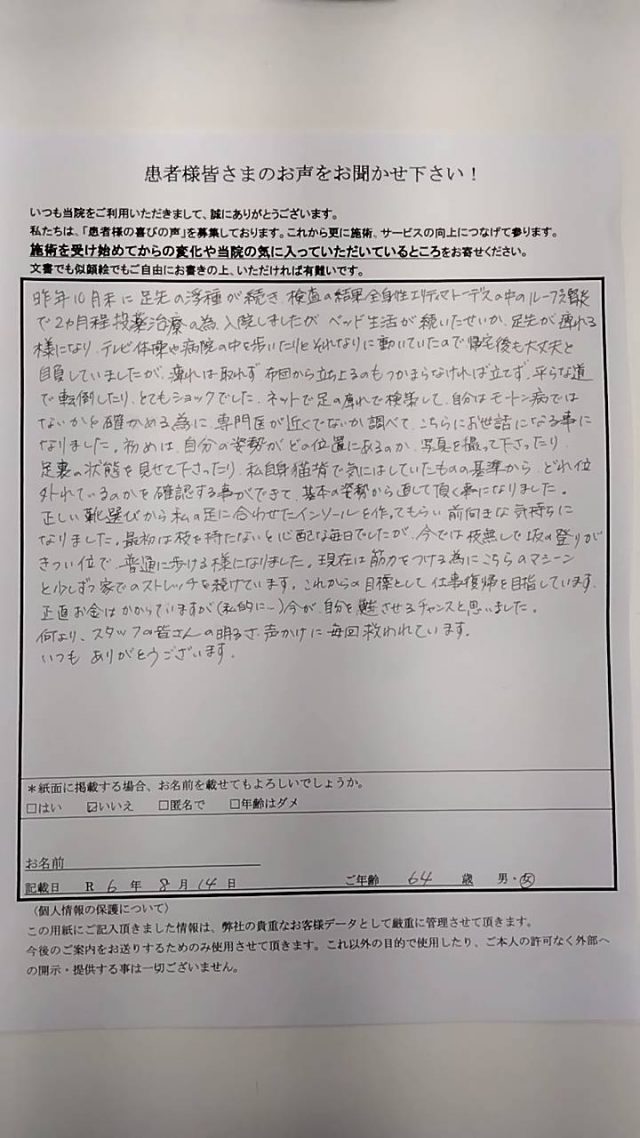 患者様皆さまのお声をお聞かせ下さい！
いつも当院をご利用いただきまして、誠にありがとうございます。
私たちは、「患者様の喜びの声」を募集しております。これから更に施術、サービスの向上につなげて参ります。
施術を受け始めてからの変化や当院の気に入っていただいているところをお寄せください。
文書でも似顔絵でもご自由にお書きの上、いただければ有難いです。
昨年10月末に足先の浮種が続き、検査の結果全身性エリテマトーデスの中のループス腎炎
で2ヵ月程投薬治療の為、入院しましたが ベッド生活が続いたせいか、足先が痺れる
様になり、テレビ体操や病院の中を歩いたりと それなりに動いていたので帰宅後も大丈夫と
自負していましたが、痺れは取れず 布団から立ち上るのもつかまらなければ立てず、平らな道
で転倒したり、とてもショックでした。ネットで足の痺れで検索して、自分はモートン病では
ないかを確かめる為に、専門医が近くでないか調べて、こちらにお世話になる事に
なりました。初めは、自分の姿勢がどの位置にあるのか、写真を撮って下さったり
足裏の状態を見せて下さったり、私自身猫背で気にはしていたものの基準から、どれ位
外れているのかを確認する事ができて、基本の姿勢から直して頂く事になりました。
正しい靴選びから私の足に合わせたインソールを作ってもらい 前向きな気持ちに
なりました。最初は杖を持たないと心配な毎日でしたが、今では杖無しで坂の登りが
きつい位で、普通に歩ける様になりました。現在は筋力をつける為にこちらのマシーン
と少しずつ家でのストレッチを続けています。これからの目標として 仕事復帰を目指しています。
正直お金はかかっていますが(私的に…)今が自分を魅させるチャンスと思いました。
何より、スタッフの皆さんの明るさ、声かけに毎回救われています。
いつも ありがとうございます。
＊紙面に掲載する場合、お名前を載せてもよろしいでしょうか。
□はい ☑いいえ □匿名で □年齢はダメ
お名前
記載日 R 6 年 8 月 14 日 ご年齢 64 歳 男・女
〈個人情報の保護について〉
この用紙にご記入頂きました情報は、弊社の貴重なお客様データとして厳重に管理させて頂きます。
今後のご案内をお送りするためのみ使用させて頂きます。これ以外の目的で使用したり、ご本人の許可なく外部へ
の開示・提供する事は一切ございません。